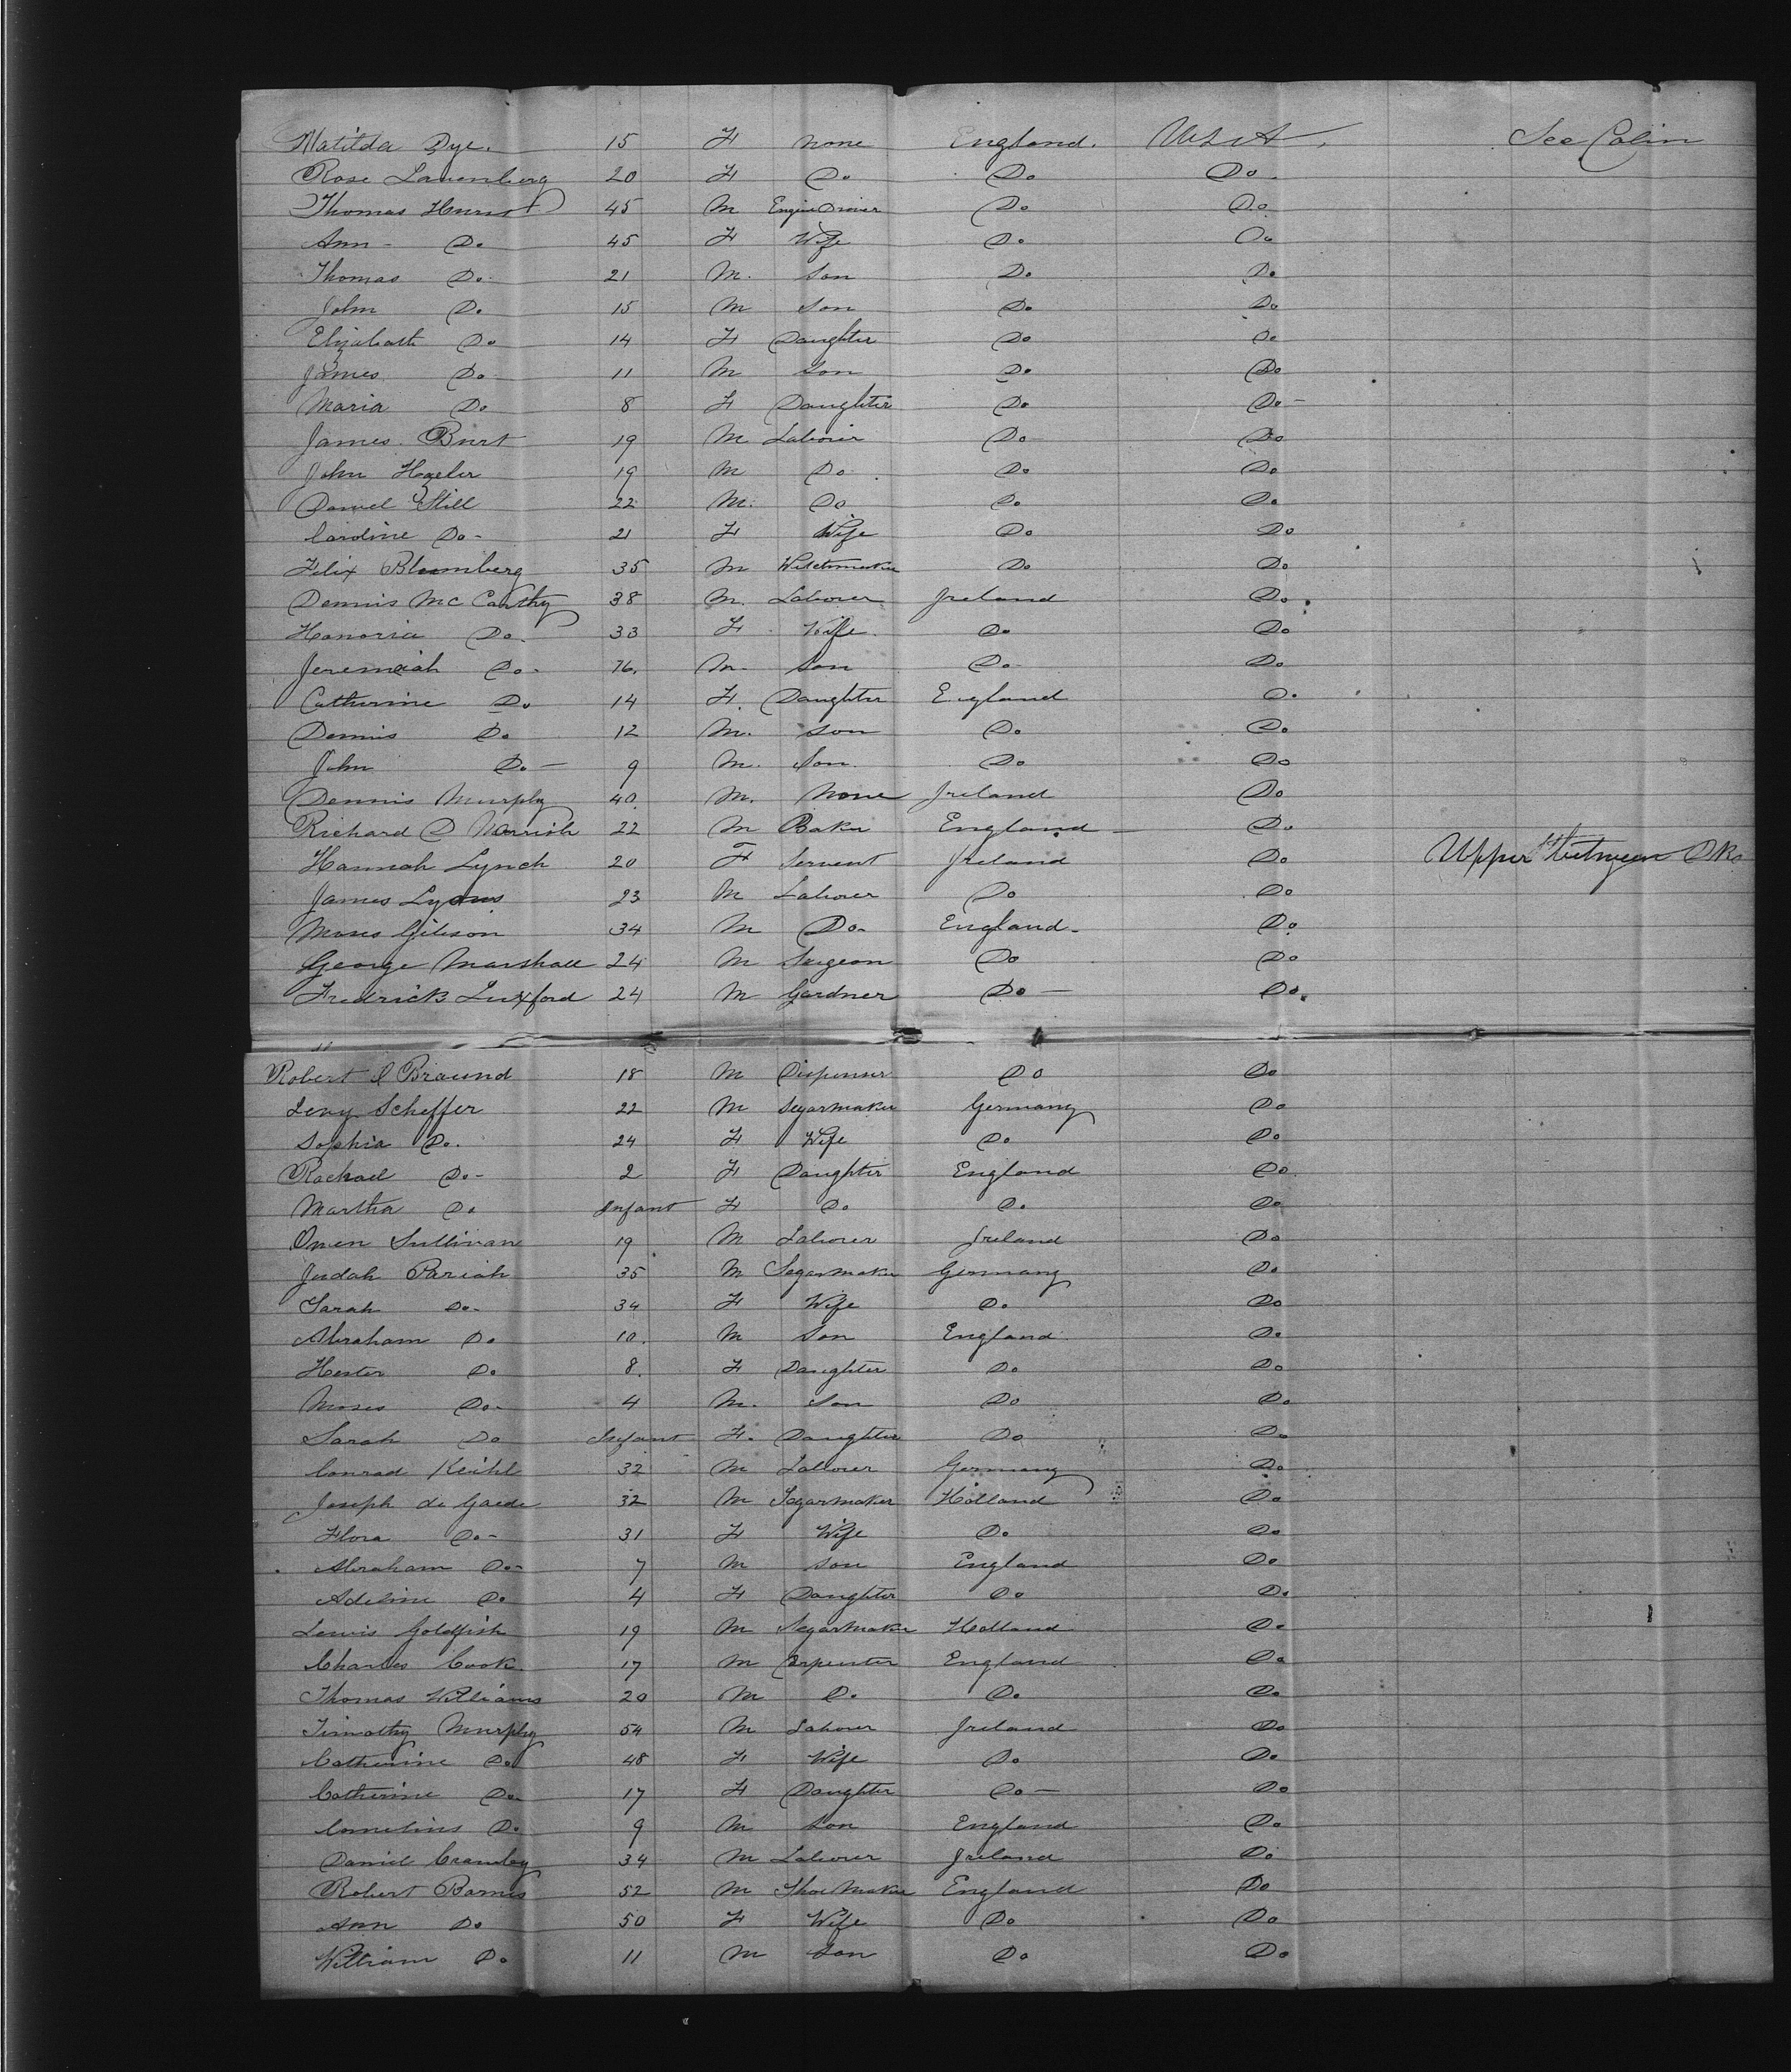 Matilda Dye. 15 F None England. U.S.A. See Cabin
Rose Lauenberg 20 F Do Do Do.
Thomas Hurst 45 M Engine Driver Do Do
Ann - Do 45 F Wife Do Do
Thomas Do. 21 M. Son Do Do
John Do. 15 M Son Do Do
Elizabeth Do 14 F Daughter Do Do
James Do 11 M Son Do Do
Maria Do 8 F Daughter Do Do -
James Burt 19 M Labourer Do Do
John 19 M Do Do Do
Daniel Still 22 M. Do Do Do
Caroline Do - 21 F Wife Do Do
Felix Blumberg 35 M Watchmaker Do Do
Dennis McCarthy 38 M. Labourer Ireland Do.
Honoria Do. 33 F. Wife. Do Do
Jeremiah Do. 16. M. Son Do Do
Catherine Do 14 F. Daughter England Do
Dennis Do 12 M. Son Do Do
John Do - 9 M. Son. Do Do
Dennis Murphy 40. M. None Ireland Do
Richard D Norrish 22 M Baker England - Do
Hannah Lynch 20 F Servent Ireland Do Upper between Dks
James Lyons 23 M Labourer Do Do
Moses Gibson 34 M Do - England - Do
George Marshall 24 M Surgeon Do Do
Fredrick Luxford 24 M Gardner Do - Do.
Robert Braund 18 M Dispenser Do Do
Levy Scheffer 22 M Segarmaker Germany Do
Sophia Do. 24 F Wife Do Do
Rachael Do - 2 F Daughter England Do
Martha Do Infant F Do Do Do
Owen Sullivan 19 M Labourer Ireland Do
Judah Pariah 35 M Segarmaker Germany Do
Sarah Do - 34 F Wife Do Do
Abraham Do 10. M Son England Do
Hester Do 8. F Daughter Do Do
Moses Do - 4 M. Son Do Do
Sarah Do Infant F. Daughter Do Do
Conrad Keihl 32 M Labourer Germany Do
Joseph de Goede 32 M Segarmaker Holland Do
Flora Do - 31 F Wife Do Do
Abraham Do - 7 M Son England Do
Adeline Do 4 F Daughter Do Do
Lewis Goldfish 19 M Segarmaker Holland Do
Charles Cook 17 M Carpenter England Do
Thomas Williams 20 M Do Do Do
Timothy Murphy 54 M Labourer Ireland Do
Catherine Do 48 F Wife Do Do
Catherine Do - 17 F Daughter Do - Do
Cornelius Do 9 M Son England Do
Daniel Crowley 34 M Labourer Ireland Do
Robert Barnes 52 M Shoe Maker England Do
Ann Do 50 F Wife Do Do
William Do 11 M Son Do Do